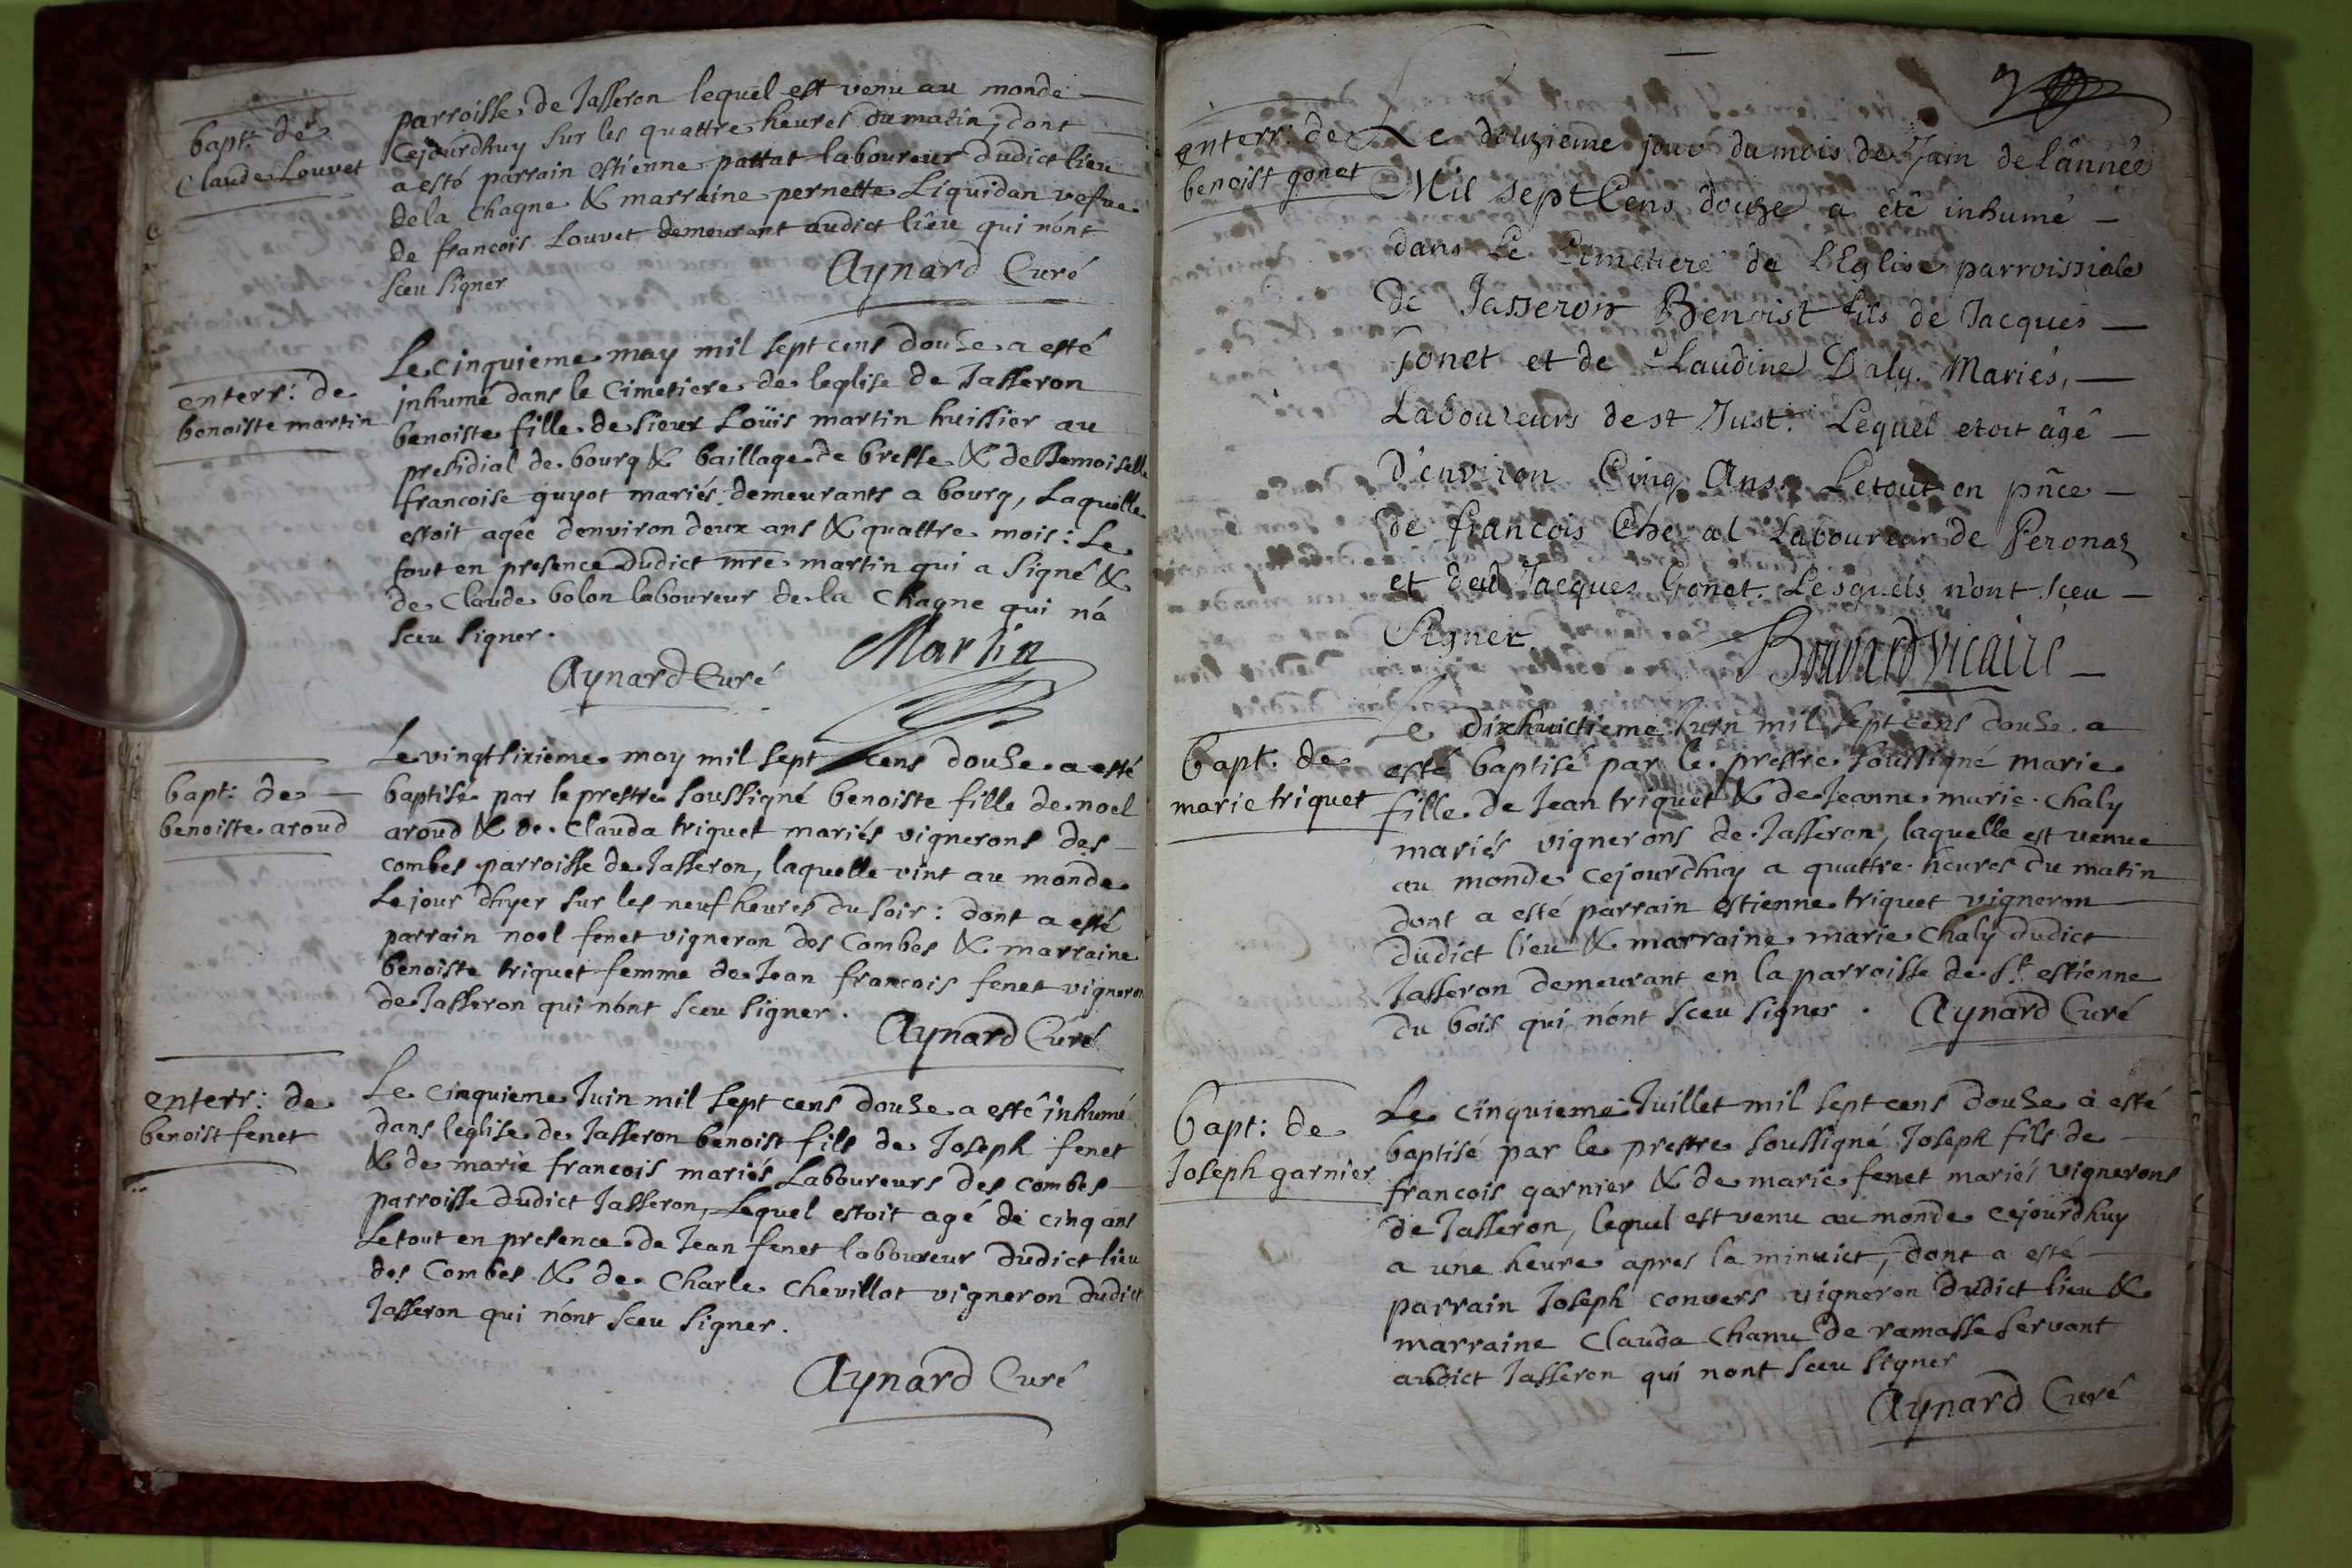 bapt: de
Claude Louvet
parroisse de Jasseron lequel est venu au monde
cejourdhuy sur les quattre heures du matin, dont
a esté parrain estienne pattat laboureur dudict lieu
de la Chagne & marraine pernette Liquidan vefue
de francois Louvet demeurant audict lieu qui n'ont
sceu signer
Aynard Curé
enterr: de
benoiste martin
Le cinquieme may mil sept cens douse a esté
inhumé dans le Cimetiere de leglise de Jasseron
benoiste fille de sieur Loüis martin huissier au
presidial de bourg & baillage de bresse & de Demoiselle
francoise guyot mariés demeurants a bourg, Laquelle
estoit agée denviron deux ans & quattre mois: Le
tout en presence dudict mre martin qui a signé &
de Claude bolon laboureur de la Chagne qui n'a
sceu signer.
Martin
Aynard Curé
bapt: de
benoiste aroud
Le vingtsixieme may mil sept cens douse a esté
baptisé par le prestre soussigné benoiste fille de noel
aroud & de Clauda triquet mariés vignerons des
combes parroisse de Jasseron, laquelle vint au monde
Le jour dhyer sur les neuf heures du soir: dont a esté
parrain noel fenet vigneron des Combes & marraine
benoiste triquet femme de Jean francois fenet vigneron
de Jasseron qui n'ont sceu signer.
Aynard Curé
enterr: de
benoist fenet
Le cinquieme Juin mil sept cens douse a esté inhumé
dans leglise de Jasseron benoist fils de Joseph fenet
& de marie francois mariés Laboureurs des combes
parroisse dudict Jasseron, Lequel estoit agé de cinq ans
Le tout en presence de Jean fenet laboureur dudict lieu
des Combes & de Charle Chevillot vigneron dudict
Jasseron qui n'ont sceu signer.
Aynard Curé
enterr: de
benoist gonet
Le douzieme jour du mois de Juin de l'année
Mil sept Cens douze a été inhumé
dans Le Cimetiere de L'Eglise parroissiale
De Jasseron Benoist fils de Jacques
Gonet et de Claudine Daly. Mariés,
Laboureurs de st Just. Lequel etoit âgé
D'environ Cinq Ans. Le tout en pñce
de francois Cheval Laboureur de Peronaz
et dud Jacques Gonet. Lesquels n'ont sceu
Signer.
Bouvard vicaire
bapt: de
marie triquet
Le dixhuictieme Juin mil sept cens douse a
esté baptisé par le prestre soussigné marie
fille de Jean triquet & de Jeanne marie Chaly
mariés vignerons de Jasseron, laquelle est venue
au monde cejourdhuy a quattre heures du matin
dont a esté parrain estienne triquet vigneron
dudict lieu & marraine marie Chaly dudict
Jasseron demeurant en la parroisse de St. estienne
du bois qui n'ont sceu signer. Aynard Curé
bapt: de
Joseph garnier
Le cinquieme Juillet mil sept cens douse a esté
baptisé par le prestre soussigné Joseph fils de
francois garnier & de marie fenet mariés vignerons
de Jasseron, lequel est venu au monde cejourdhuy
a une heure apres la minuict, dont a esté
parrain Joseph convers vigneron dudict lieu &
marraine Clauda Chanu de ramasse servant
audict Jasseron qui nont sceu signer
Aynard Curé